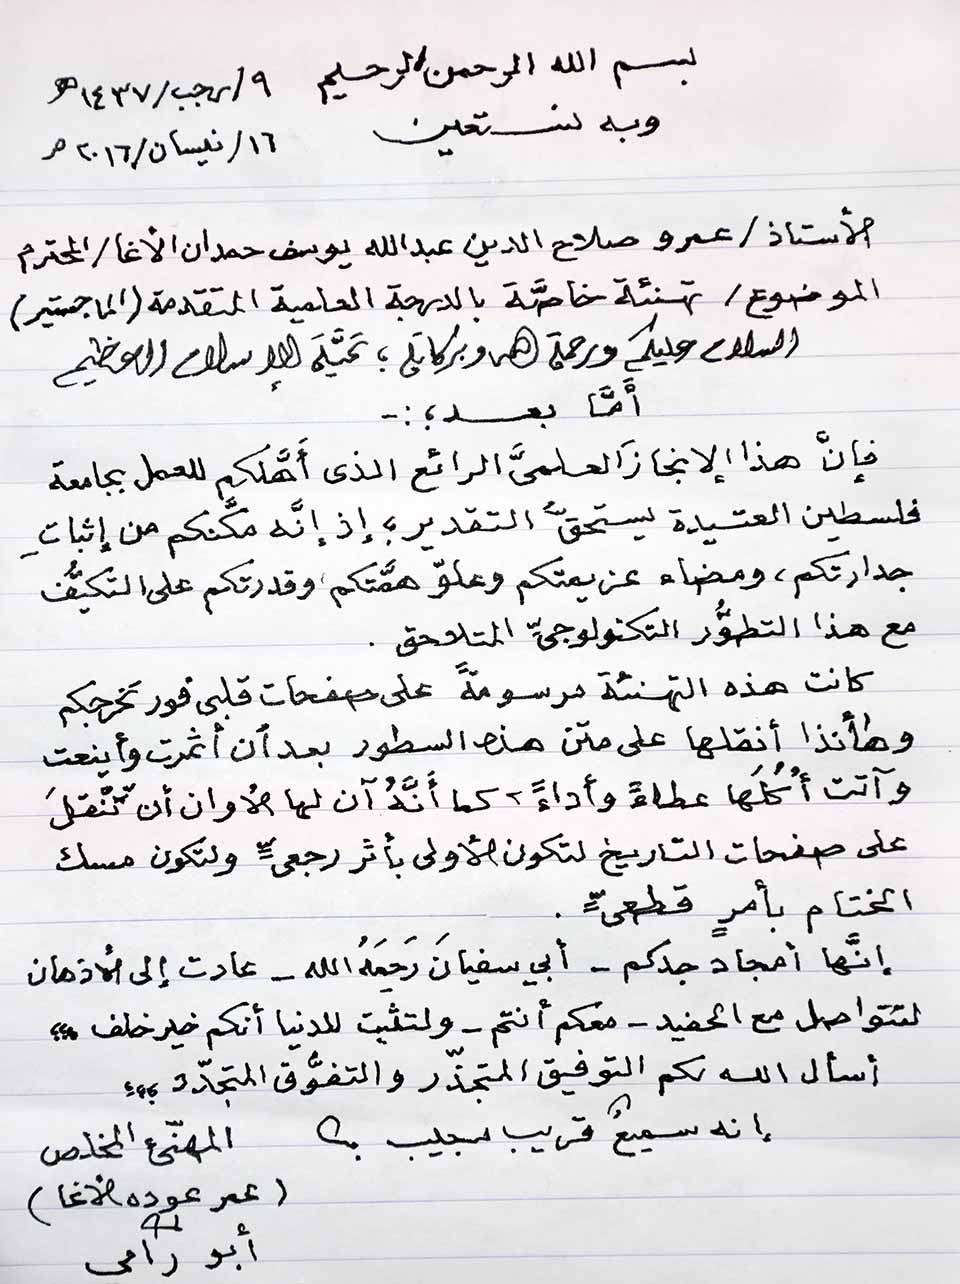 بسم الله الرحمن الرحيم
٩/رجب/١٤٣٧هـ
وبه نستعين
١٦/نيسان/٢٠١٦م
الأستاذ/عمرو صلاح الدين عبدالله يوسف حمدان الأغا/المحترم
الموضوع/ تهنئة خاصَّة بالدرجة العلمية المتقدمة (الماجستير)
السلام عليكم ورحمة الله وبركاته؛ تحيَّة الإسلام العظيم
أمَّا بعــد؛:-
فإنَّ هذا الإنجاز العلميَّ الرائع الذى أهَّلكم للعمل بجامعة
فلسطين العتيدة يستحقّ التقدير؛ إذ إنَّه مكَّنكم من إثباتِ
جدارتكم، ومضاء عزيمتكم وعلوّ همَّتكم، وقدرتكم على التكيُّف
مع هذا التطوُّر التكنولوجىِّ المتلاحق .
كانت هذه التهنئة مرسومةً على صفحات قلبى فور تخرجكم
وهأنذا أنقلها على متن هذه السطور بعد أن أثمرت وأينعت
وآتت أُكُلَها عطاءً وأداءً، كما أنَّهُ آن لها الأوان أن تُنْقلَ
على صفحات التاريخ لتكون الأولى بأثر رجعىٍّ ولتكون مسك
الختام بأمرٍ قطعىٍّ .
إنَّها أمجاد جدكم - أبي سفيانَ رَحِمَهُ الله - عادت إلى الأذهان
لتتواصل مع الحفيد - معكم أنتم - ولتثبت للدنيا أنكم خير خلف ؛؛
أسأل الله لكم التوفيق المتجذّر والتفوُّق المتجدّد ؛؛؛
إنه سميعٌ قريب مجيب
المهنّئ المخلص
(عمر عوده الأغا)
أبو رامى